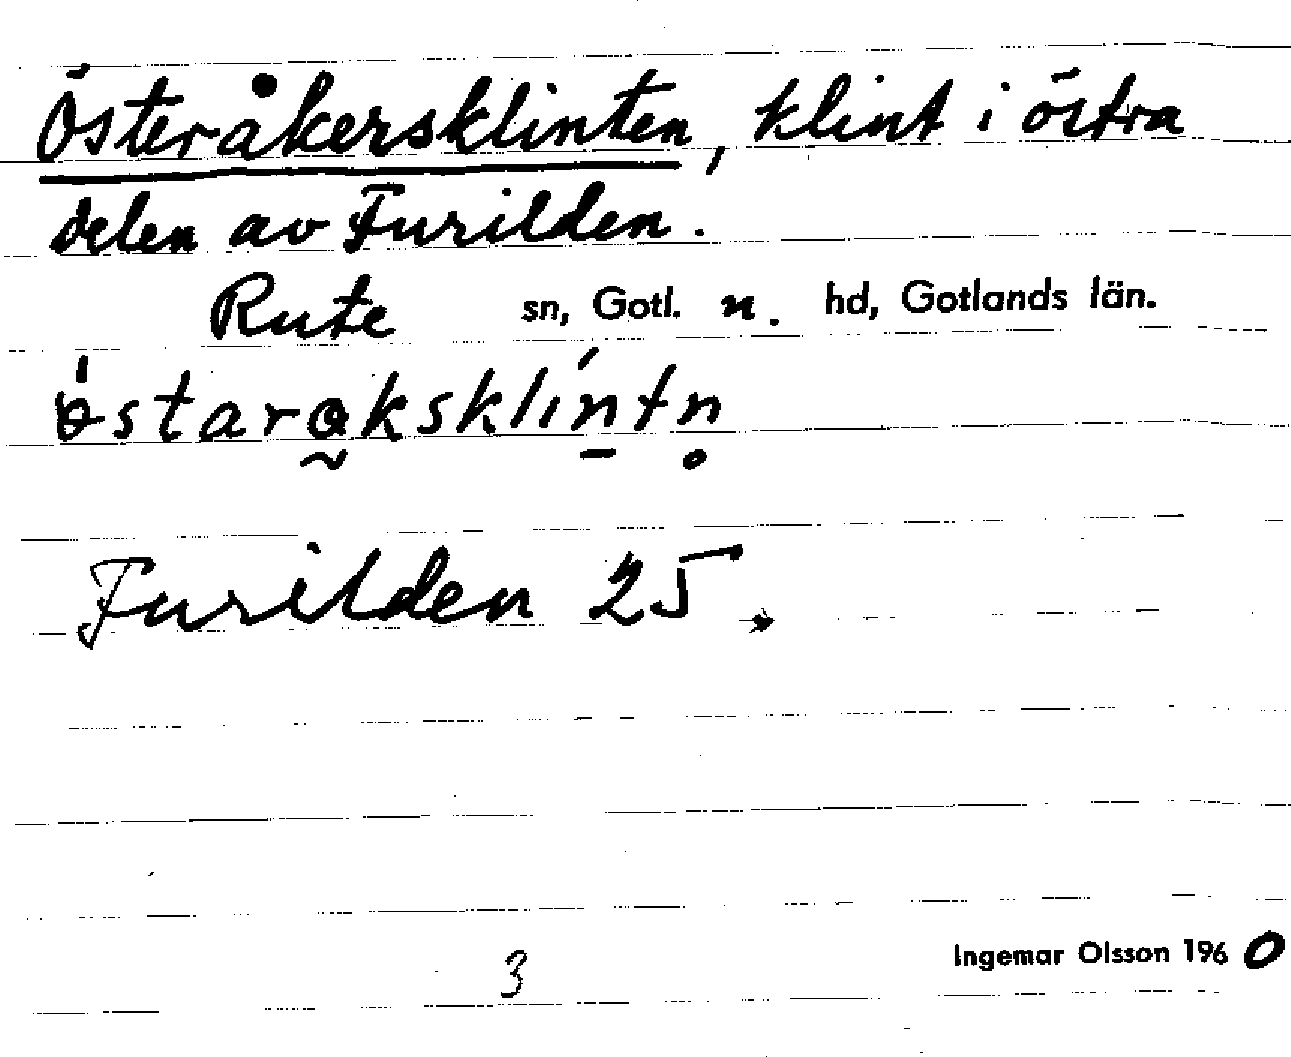 Österåkersklinten, klint i östra
delen av Furilden.
Rute sn, Gotl. n. hd, Gotlands län.
Furilden 25.
3
Ingemar Olsson 1960